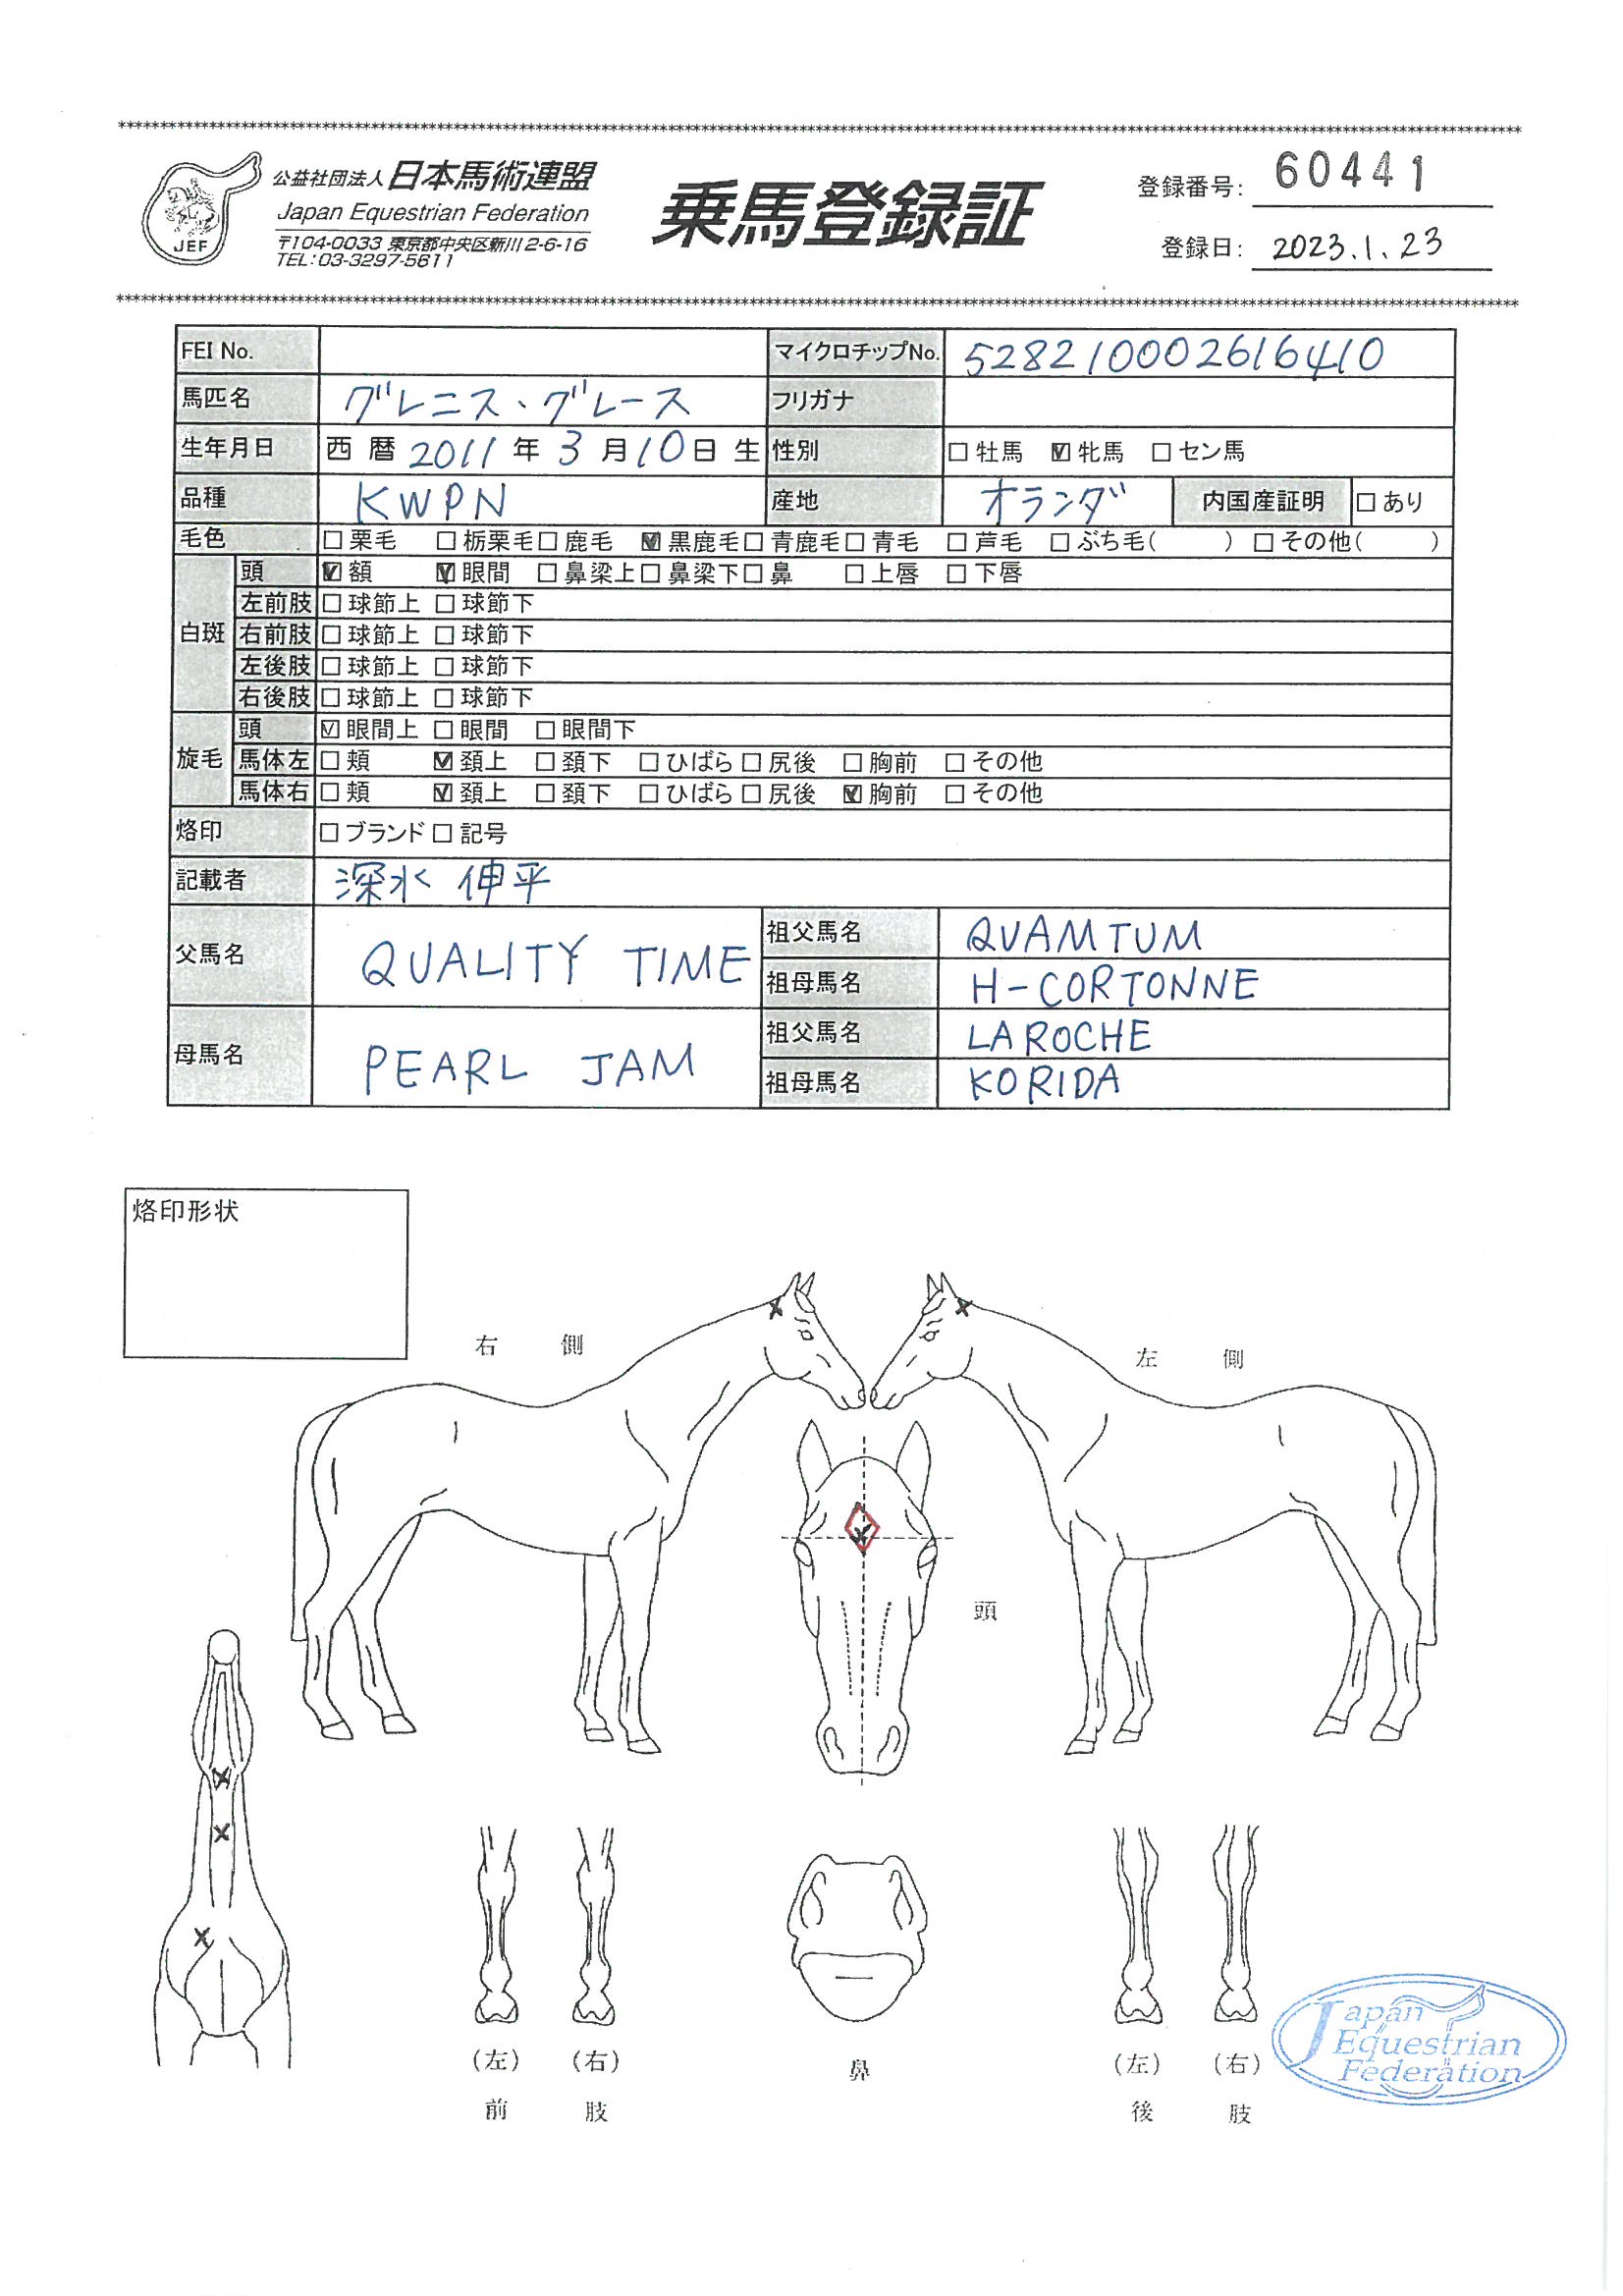 ************************************************************
公益社団法人 日本馬術連盟
Japan Equestrian Federation
〒104-0033 東京都中央区新川2-6-16
TEL:03-3297-5611
JEF
乗馬登録証
登録番号: 60441
登録日: 2023.1.23
************************************************************
FEI No. マイクロチップNo. 528210002616410
馬匹名 グレニス、グレース フリガナ
生年月日 西暦 2011 年 3 月 10 日 生 性別 □ 牡馬 ☑ 牝馬 □ セン馬
品種 KWPN 産地 オランダ 内国産証明 □ あり
毛色 □ 栗毛 □ 栃栗毛 □ 鹿毛 ☑ 黒鹿毛 □ 青鹿毛 □ 青毛 □ 芦毛 □ ぶち毛( ) □ その他( )
白斑 頭 ☑ 額 ☑ 眼間 □ 鼻梁上 □ 鼻梁下 □ 鼻 □ 上唇 □ 下唇
左前肢 □ 球節上 □ 球節下
右前肢 □ 球節上 □ 球節下
左後肢 □ 球節上 □ 球節下
右後肢 □ 球節上 □ 球節下
旋毛 頭 ☑ 眼間上 □ 眼間 □ 眼間下
馬体左 □ 頬 ☑ 頚上 □ 頚下 □ ひばら □ 尻後 □ 胸前 □ その他
馬体右 □ 頬 ☑ 頚上 □ 頚下 □ ひばら □ 尻後 ☑ 胸前 □ その他
烙印 □ ブランド □ 記号
記載者 深水 伸平
父馬名 QUALITY TIME 祖父馬名 QUAMTUM
祖母馬名 H-CORTONNE
母馬名 PEARL JAM 祖父馬名 LAROCHE
祖母馬名 KORIDA
烙印形状
右 側
左 側
頭
(左) (右)
前 肢
鼻
(左) (右)
後 肢
Japan
Equestrian
Federation